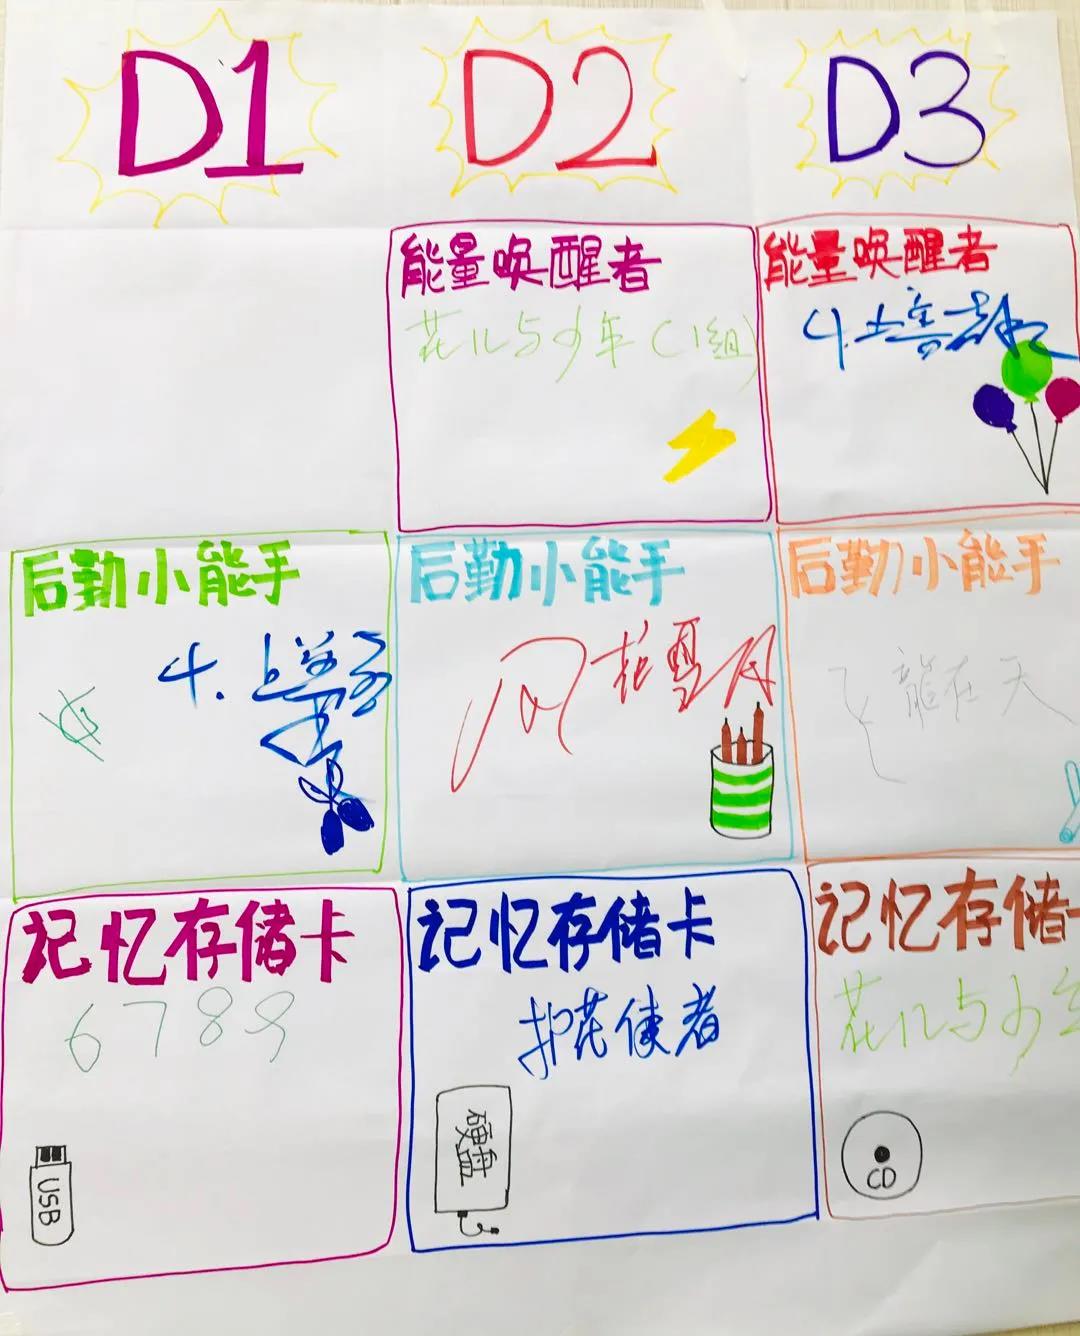 D1
D2
D3
能量唤醒者
花儿与少年(1组)
能量唤醒者
4.上善若水
后勤小能手
4.上善
后勤小能手
风花雪月
后勤小能手
飞龍在天
记忆存储卡
6789
USB
记忆存储卡
护花使者
硬盘
记忆存储卡
花儿与少年
CD